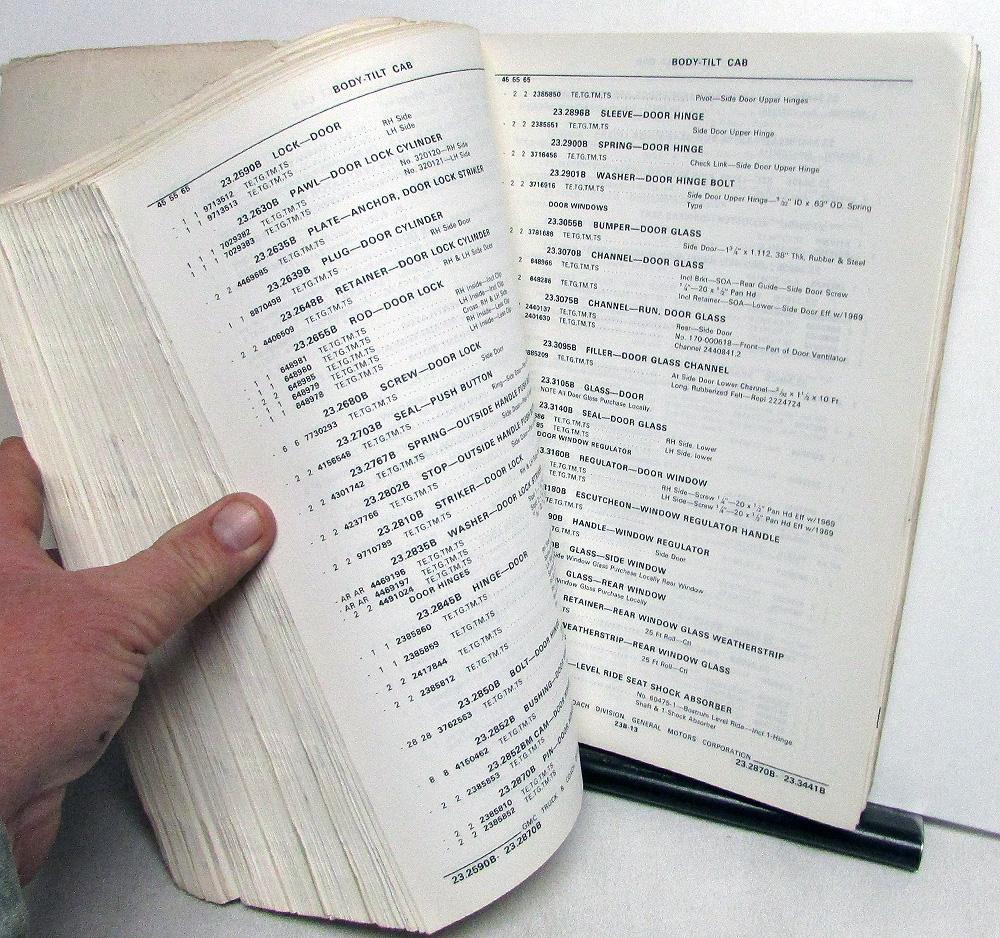 BODY-TILT CAB
45 55 65
23.2590B LOCK—DOOR
1 1 9713512 TE,TG,TM,TS RH Side
1 1 9713513 TE,TG,TM,TS LH Side
23.2630B PAWL—DOOR LOCK CYLINDER
1 1 1 7029382 TE,TG,TM,TS No. 320120—RH Side
1 1 1 7029383 TE,TG,TM,TS No. 320121—LH Side
23.2635B PLATE—ANCHOR, DOOR LOCK STRIKER
2 2 4469685 TE,TG,TM,TS
23.2639B PLUG—DOOR CYLINDER
1 1 8870498 TE,TG,TM,TS RH Side Door
23.2648B RETAINER—DOOR LOCK CYLINDER
2 2 4406509 TE,TG,TM,TS RH & LH Side Door
23.2655B ROD—DOOR LOCK
1 1 648981 TE,TG,TM,TS RH Inside—Incl Clip
1 1 648980 TE,TG,TM,TS LH Inside—Incl Clip
2 2 648985 TE,TG,TM,TS Cross, RH & LH Side
1 1 648979 TE,TG,TM,TS RH Inside—Less Clip
1 1 648978 TE,TG,TM,TS LH Inside—Less Clip
23.2680B SCREW—DOOR LOCK
6 6 7730293 TE,TG,TM,TS Side Door
23.2703B SEAL—PUSH BUTTON
2 2 4156546 TE,TG,TM,TS Ring—Side
23.2767B SPRING—OUTSIDE HANDLE
2 2 4301742 TE,TG,TM,TS Side Door
23.2802B STOP—OUTSIDE HANDLE
2 2 4237766 TE,TG,TM,TS Side
23.2810B STRIKER—DOOR LOCK
2 2 9710783 TE,TG,TM,TS
23.2835B WASHER—DOOR LOCK
AR AR 4469196 TE,TG,TM,TS
AR AR 4469197 TE,TG,TM,TS
2 2 4491024 TE,TG,TM,TS
DOOR HINGES
23.2845B HINGE—DOOR
1 1 2385860 TE,TG,TM,TS
1 1 2385859 TE,TG,TM,TS
2 2 2417844 TE,TG,TM,TS
2 2 2385812 TE,TG,TM,TS
23.2850B BOLT—DOOR
28 28 3762563 TE,TG,TM,TS
23.2852B BUSHING—
8 8 4150462 TE,TG,TM,TS
23.2852BM CAM—DOOR
2 2 2385853 TE,TG,TM,TS
23.2870B PIN—DOOR
2 2 2385810 TE,TG,TM,TS
2 2 2385852 TE,TG,TM,TS
GMC TRUCK &
23.2590B- 23.2870B
BODY-TILT CAB
45 55 65
2 2 2385850 TE,TG,TM,TS Pivot—Side Door Upper Hinges
23.2896B SLEEVE—DOOR HINGE
2 2 2385851 TE,TG,TM,TS Side Door Upper Hinge
23.2900B SPRING—DOOR HINGE
2 2 3716456 TE,TG,TM,TS Check Link—Side Door Upper Hinge
23.2901B WASHER—DOOR HINGE BOLT
2 2 3716916 TE,TG,TM,TS Side Door Upper Hinge— ID x .63" OD. Spring
Type
DOOR WINDOWS
23.3055B BUMPER—DOOR GLASS
2 2 3781686 TE,TG,TM,TS Side Door—1¾" x 1.112, 38" Thk, Rubber & Steel
23.3070B CHANNEL—DOOR GLASS
2 648966 TE,TG,TM,TS Incl Brkt—SOA—Rear Guide—Side Door Screw
¼"—20 x ½" Pan Hd
648286 TE,TG,TM,TS Incl Retainer—SOA—Lower—Side Door Eff w/1969
23.3075B CHANNEL—RUN, DOOR GLASS
2440137 TE,TG,TM,TS Rear—Side Door
2401630 TE,TG,TM,TS No. 170-000618—Front—Part of Door Ventilator
Channel 2440841.2
23.3095B FILLER—DOOR GLASS CHANNEL
385209 TE,TG,TM,TS At Side Door Lower Channel— x 1½ x 10 Ft.
Long. Rubberized Felt—Repl 2224724
23.3105B GLASS—DOOR
NOTE All Door Glass Purchase Locally.
23.3140B SEAL—DOOR GLASS
TE,TG,TM,TS RH Side, Lower
85 TE,TG,TM,TS LH Side, lower
DOOR WINDOW REGULATOR
3.3160B REGULATOR—DOOR WINDOW
TE,TG,TM,TS RH Side—Screw ¼"—20 x ½" Pan Hd Eff w/1969
TE,TG,TM,TS LH Side—Screw ¼"—20 x ½" Pan Hd Eff w/1969
3180B ESCUTCHEON—WINDOW REGULATOR HANDLE
TE,TG,TM,TS
90B HANDLE—WINDOW REGULATOR
Side Door
0B GLASS—SIDE WINDOW
Side Window Glass Purchase Locally Rear Window
GLASS—REAR WINDOW
Window Glass Purchase Locally
RETAINER—REAR WINDOW GLASS WEATHERSTRIP
TS 25 Ft Roll—Ctl
WEATHERSTRIP—REAR WINDOW GLASS
25 Ft Roll—Ctl
—LEVEL RIDE SEAT SHOCK ABSORBER
No. 60475-1—Bostrum Level Ride—Incl 1-Hinge
Shaft & 1-Shock Absorber
OACH DIVISION GENERAL MOTORS CORPORATION
23B-13
23.2870B- 23.3441B